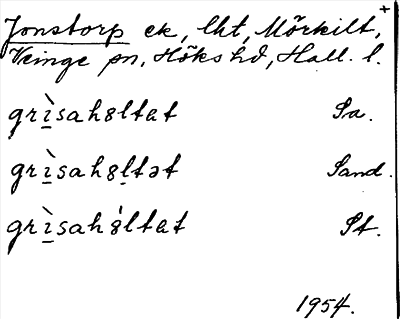 Jonstorp ek, lht, Mörkilt, +
Veinge sn, Höks hd, Hall. l.
grı̱̀sah8ltat Sa.
grı̱̀sah8ḻtət Sand.
grı̱̀sah8́ltat St.
1954.